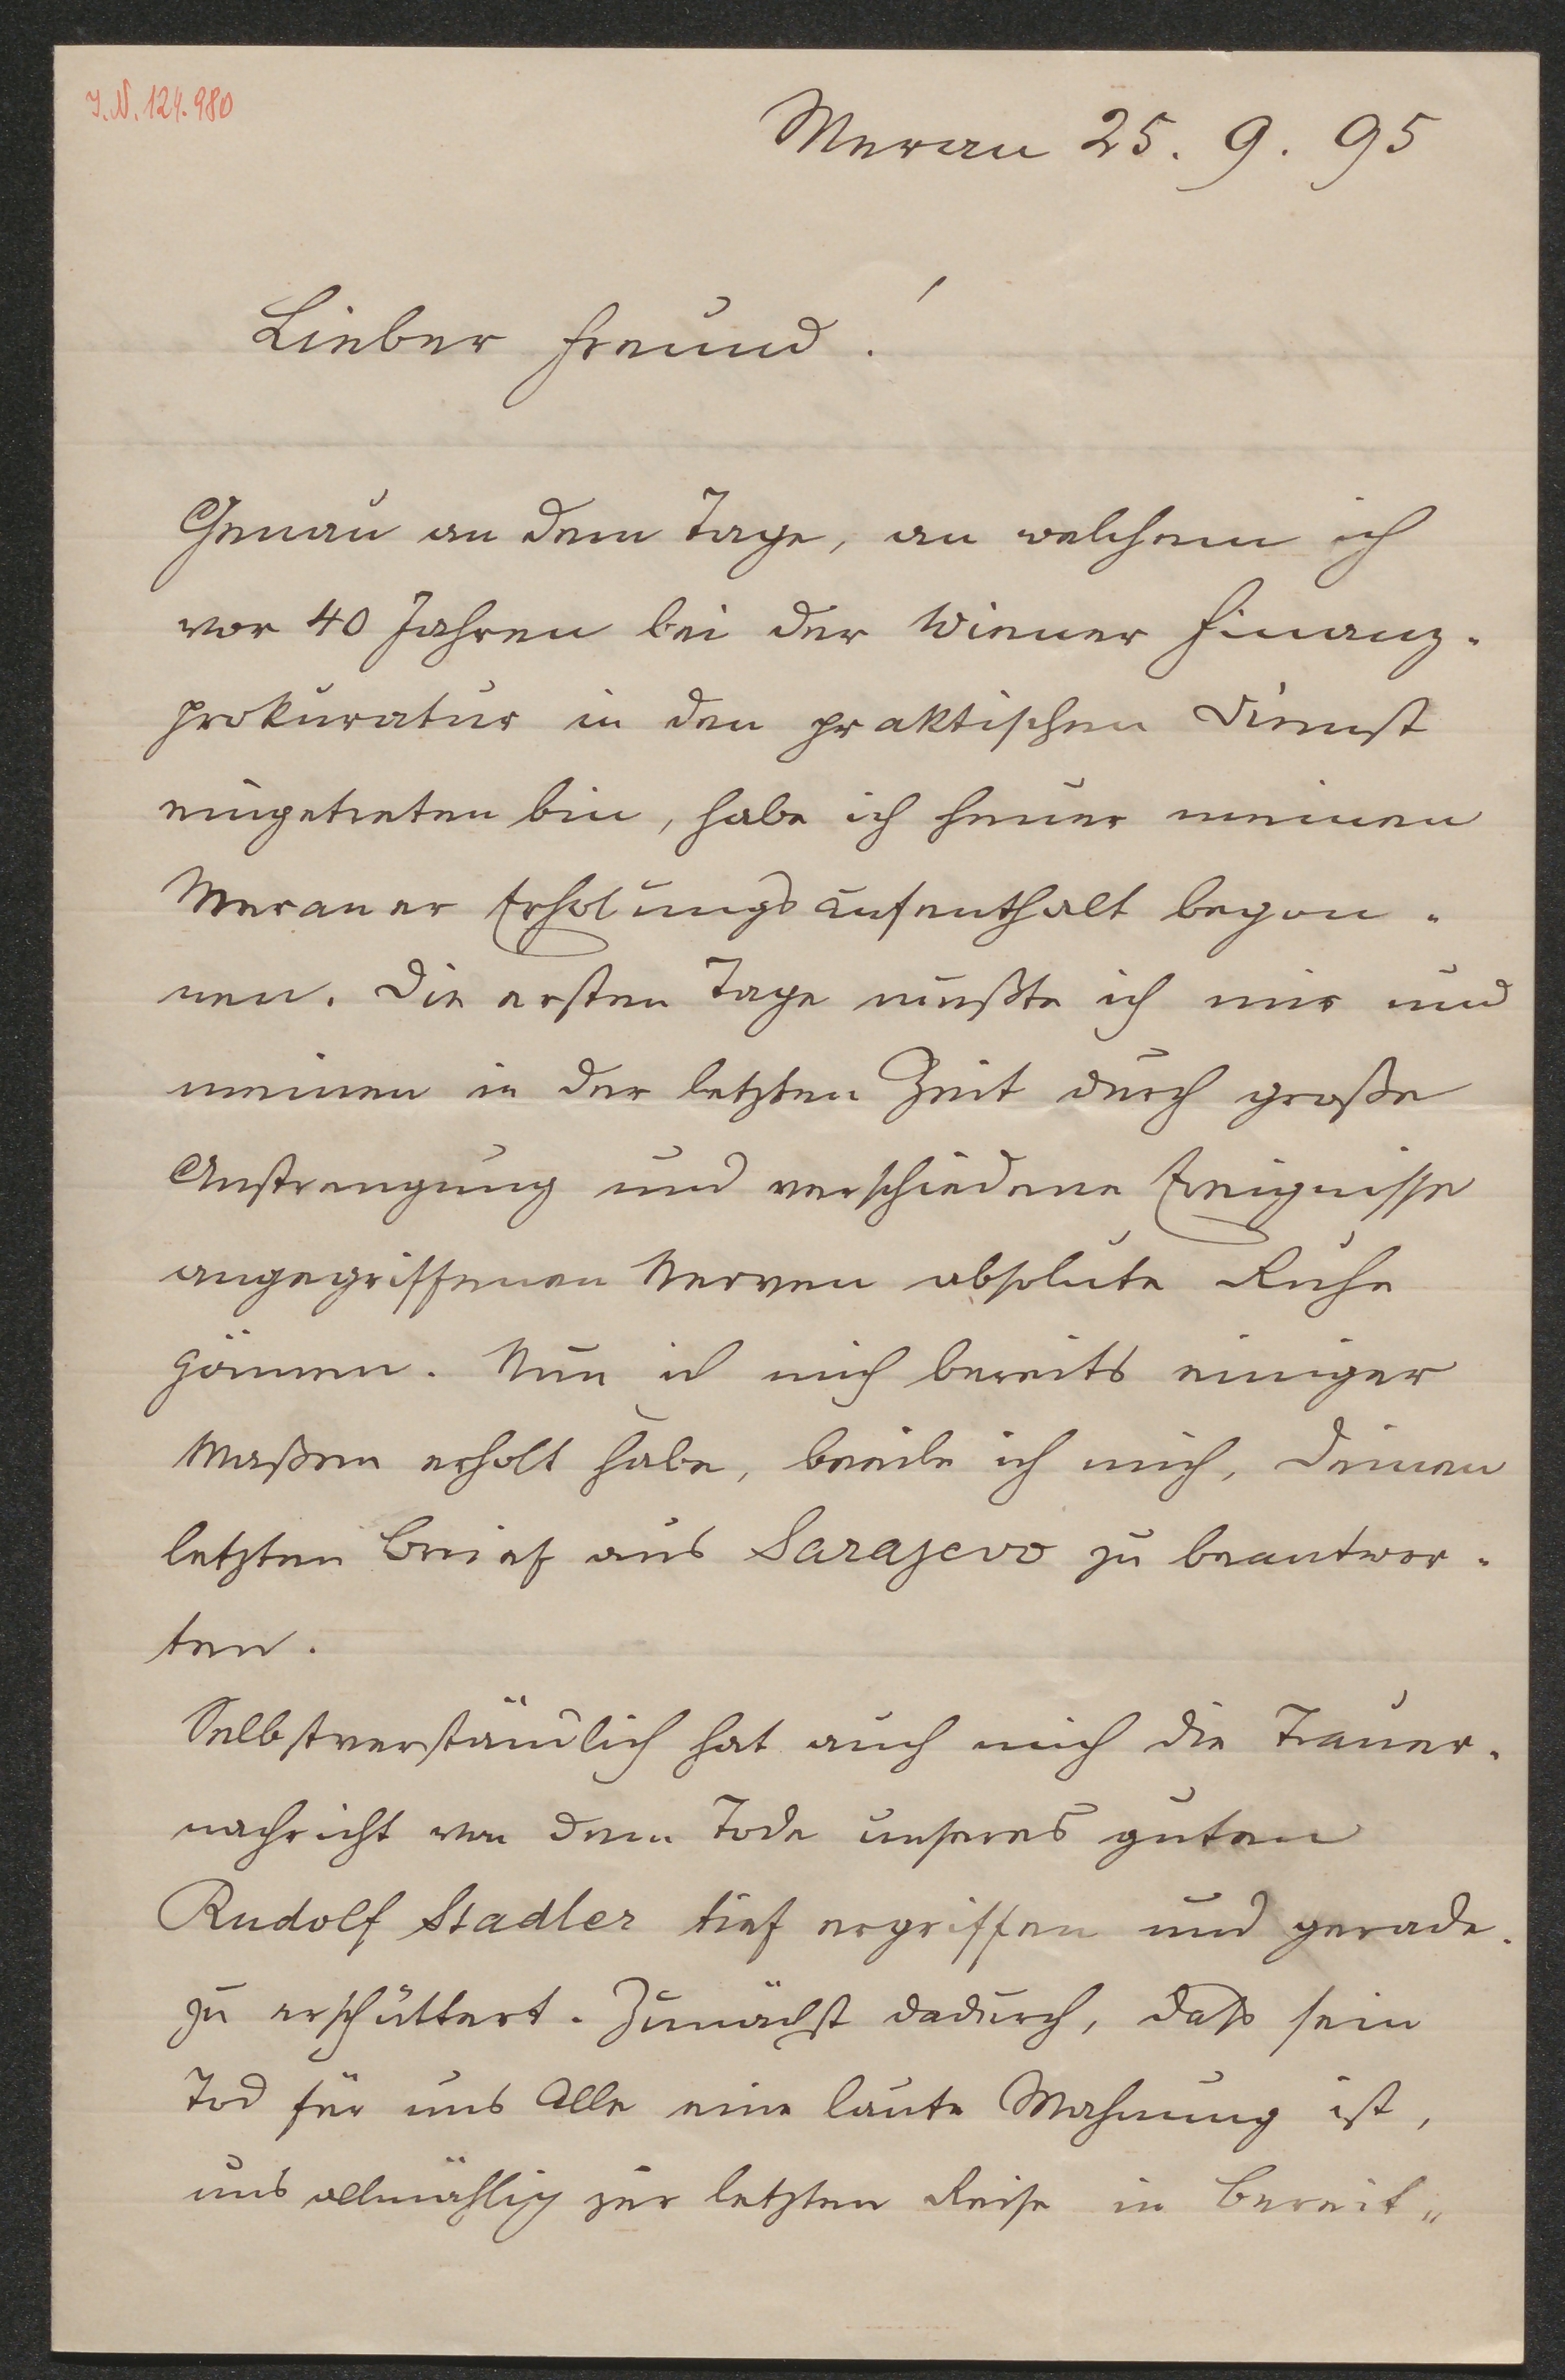 J.N. 124.980
Meran 25. 9. 95
Lieber Freund!
Genau an dem Tage, an welchem ich
vor 40 Jahren bei der Wiener Finanz-
prokuratur in den praktischen Dienst
eingetreten bin, habe ich heuer meinen
Meraner Erholungsaufenthalt begon-
nen. Die ersten Tage mußte ich mir und
meinen in der letzten Zeit durch große
Anstrengung und verschiedene Ereignisse
angegriffenen Nerven absolute Ruhe
gönnen. Nun ich mich bereits einiger
Maßen erholt habe, beeile ich mich, Deinen
letzten Brief aus Sarajevo zu beantwor-
ten.
Selbstverständlich hat auch mich die Trauer-
nachricht von dem Tode unseres guten
Rudolf Stadler tief ergriffen und gerade-
zu erschüttert. Zunächst dadurch, daß sein
Tod für uns Alle eine laute Mahnung ist,
uns allmählig zur letzten Reise in Bereit-